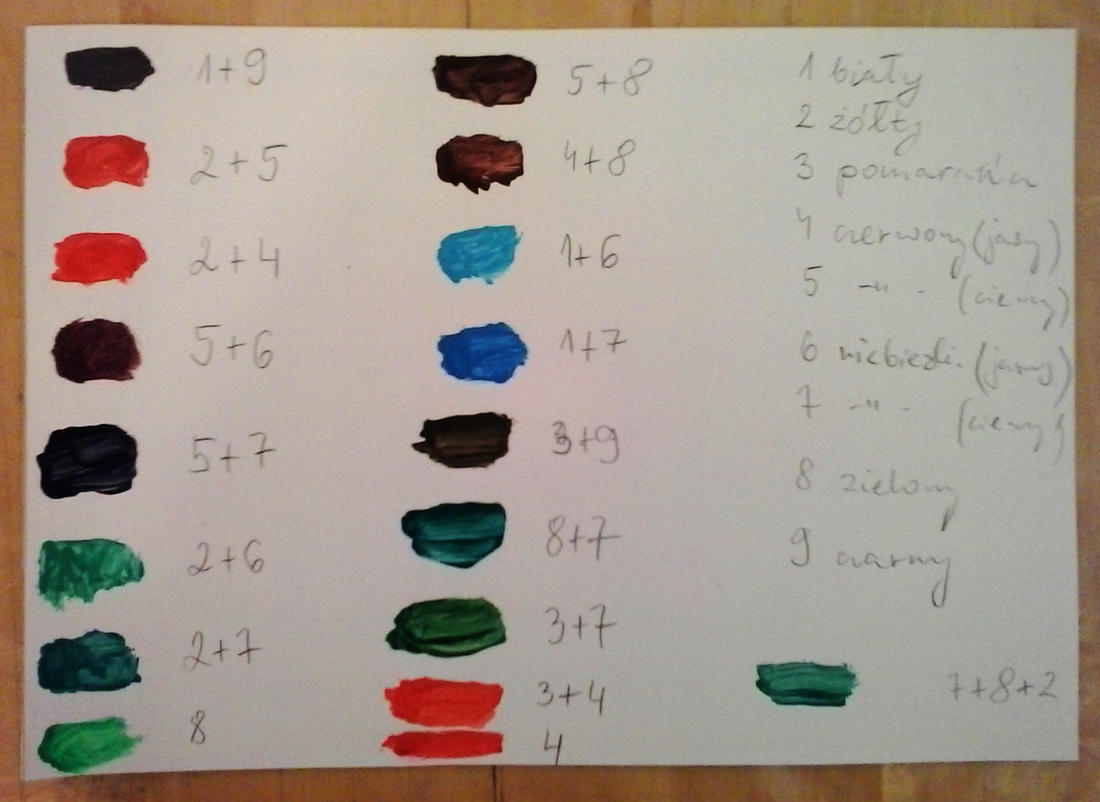 1+9
2+5
2+4
5+6
5+7
2+6
2+7
8
5+8
4+8
1+6
1+7
3+9
8+7
3+7
3+4
4
1 biały
2 żółty
3 pomarańcz
4 czerwony (jasy)
5 -"- (ciemy)
6 niebieski (jasny)
7 -"- (ciemy)
8 zielony
9 czarny
7+8+2